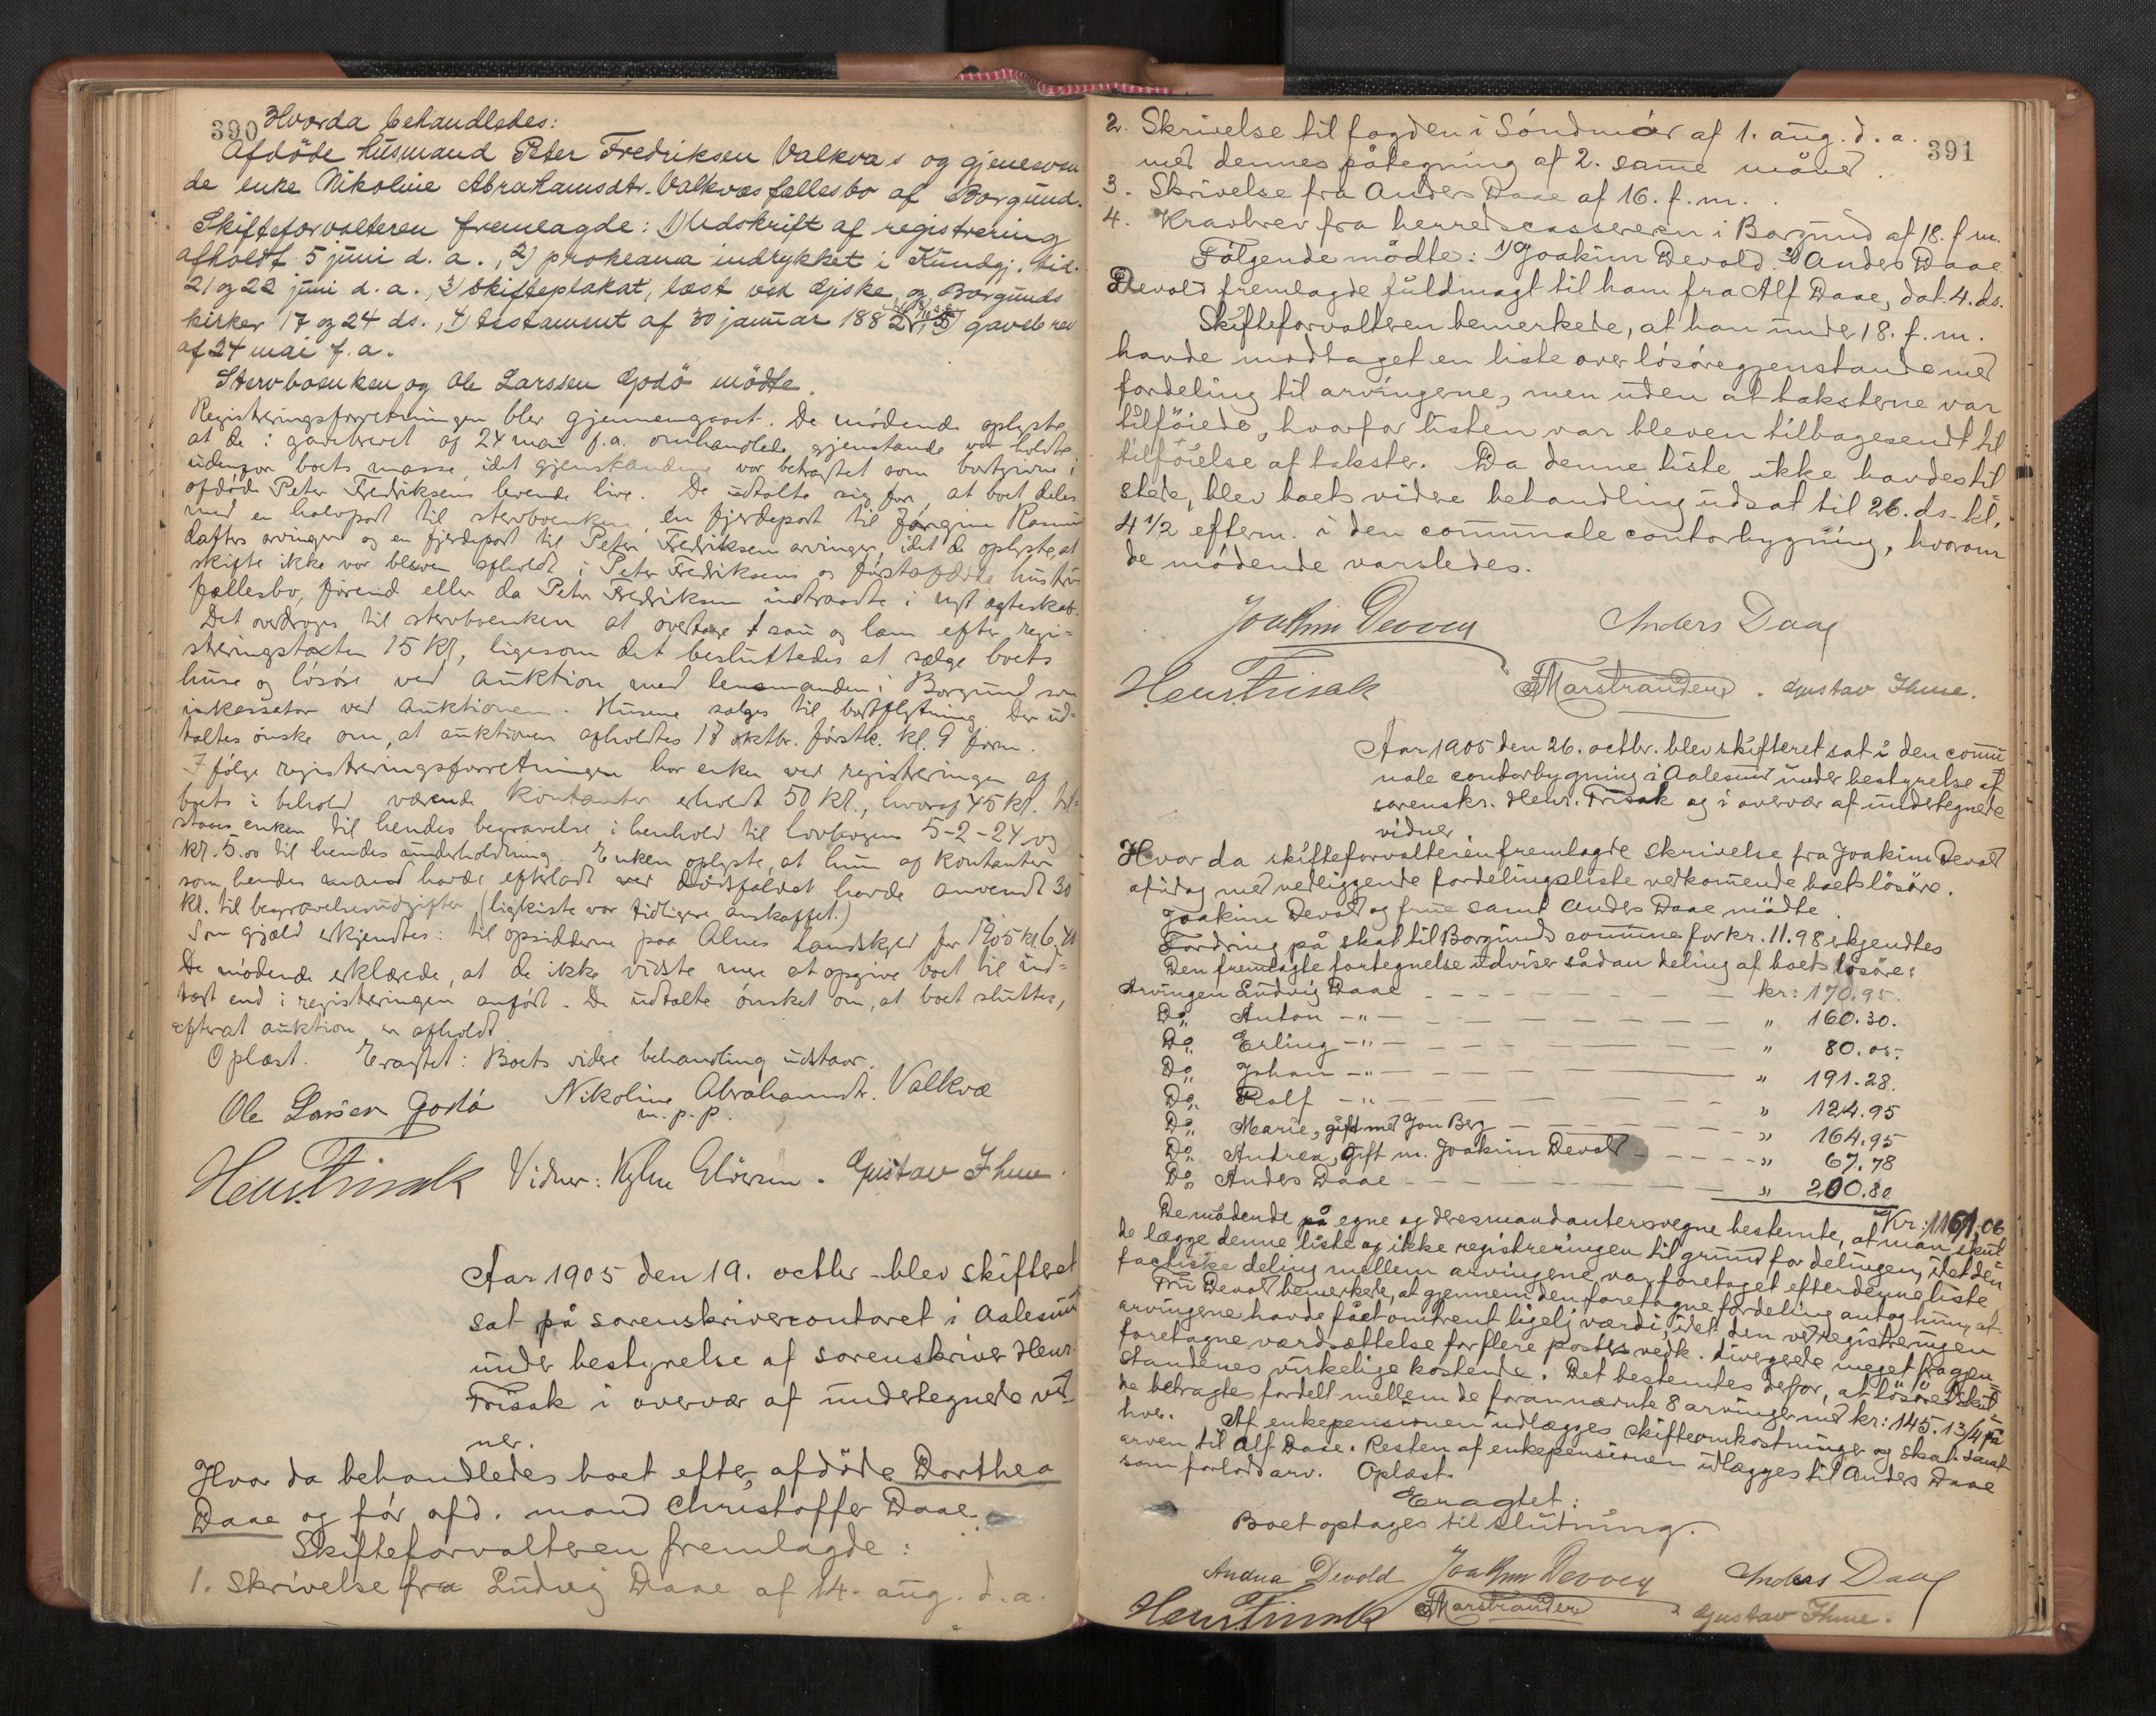 390
Hvorda behandledes:
Afdöde husmand Peter Fredriksen Valkvæs og gjenleven
de enke Nikoline Abrahamsdtr. Valkvæs fællesbo af Borgund.
Skifteforvalteren fremlagde: 1) Udskrift af registrering
afholdt 5 juni d. a., 2) proklama indrykket i Kundgj. tid.
21 og 22 juni d. a., 3) skifteplakat, læst ved Giske og Borgunds
kirker 17 og 24 ds., 4) testament af 30 januar 1882, 5) gavebrev
af 24 mai f. a.
Stervboenken og Ole Larssen Godö mödte.
Registreringsforretningen blev gjennemgaaet. De mödende oplyste
at de i gavebrevet af 24 mai f. a. omhandlede gjenstande var holdte
udenfor boets masse, idet gjenstandene var betragtet som bortgivne i
afdöde Peter Fredriksens levende live. De udtalte sig for, at boet deles
med en halvpart til stervboenken, en fjerdepart til Jörgine Rasmus
datters arvinger og en fjerdepart til Peter Fredriksens arvinger, idet de oplyste, at
skifte ikke var bleven afholdt i Peter Fredriksens og förstafdöde hustrus
fællesbo, förend eller da Peter Fredriksen indtraadte i nyt ægteskab.
Det overdroges til stervboenken at overtage 1 sau og lam efter regi-
streringstaxten 15 kr, ligesom det besluttedes at sælge boets
huse og lösöre ved auktion med lensmanden i Borgund som
inkassator ved auktionen. Husene sælges til bortflytning. Der ud-
taltes önske om, at auktionen afholdtes 18 oktbr. förstk. kl. 9 form.
Ifölge registreringsforretningen har enken ved registreringen af
boets i behold værende kontanter erholdt 50 kr., hvoraf 45 kr. til-
staaes enken til hendes begravelse i henhold til lovbogens 5-2-24 og
kr. 5.00 til hendes underholdning. Enken oplyste, at hun af kontanter
som hendes mand havde efterladt ved dödsfaldet havde anvendt 30
kr. til begravelsesudgifter (ligkiste var tidligere anskaffet.)
Som gjæld erkjendtes: til opsidderne paa Alnes landskyld for 1905 kr. 6.40
De mödende erklærede, at de ikke vidste mere at opgive boet til ind-
tægt end i registreringen anfört. De udtalte önsket om, at boet sluttes,
efterat auktion er afholdt
Oplæst. Eragtet: Boets videre behandling udstaar.
Ole Larsen Godö Nikoline Abrahamsdtr. Valkvæ
m. p. p.
Henr Frisak Vidner: Gustav Thue.
Aar 1905 den 19. octbr. blev skifteret
sat på sorenskrivercontoret i Aalesund
under bestyrelse af sorenskriver Henr.
Frisak i overvær af undertegnede vid-
ner.
Hvor da behandledes boet efter afdöde Dorthea
Daae og för afd. mand Christoffer Daae.
Skifteforvalteren fremlagde:
1. Skrivelse fra Ludvig Daae af 14. aug. d. a.
391
2. Skrivelse til fogden i Söndmör af 1. aug. d. a.
med dennes påtegning af 2. same måned.
3. Skrivelse fra Anders Daae af 16. f. m.
4. Kravbrev fra herredscassereren i Borgund af 18. f. m.
Fölgende mödte: 1) Joakim Devold 2) Anders Daae.
Devold fremlagde fuldmagt til ham fra Alf Daae, dat. 4. ds.
Skifteforvalteren bemerkede, at han under 18. f. m.
havde modtaget en liste over lösöregjenstande med
fordeling til arvingerne, men uden at taksterne var
tilföiede, hvorfor listen var bleven tilbagesendt til
tilföielse af takster. Da denne liste ikke havdes til
stede, blev boets videre behandling udsat til 26. ds. kl.
4 1/2 efterm. i den communale contorbygning, hvorom
de mödende varsledes.
Joakim Devold Anders Daae
Henr. Frisak Marstrander. Gustav Thue.
Aar 1905 den 26. octbr. blev skifteret sat i den commu
nale contorbygning i Aalesund under bestyrelse af
sorenskr. Henr. Frisak og i overvær af undertegnede
vidner
Hvor da skifteforvalteren fremlagde skrivelse fra Joakim Devold
af idag med vedliggende fordelingsliste vedkommende boets lösöre.
Joakim Devold og frue samt Anders Daae mödte.
Fordring på skat til Borgunds commune for kr. 11.98 erkjendtes
Den fremlagte fortegnelse udviser sådan deling af boets lösöre:
Arvingen Ludvig Daae kr: 170.95.
Do Anton -"- " 160.30.
Do Erling -"- " 80.05.
Do Johan -"- " 191.28.
Do Rolf -"- " 124.95
Do Marie, gift med Jon Berg " 164.95
Do Andrea, gift m. Joakim Devold " 67.78
Do Anders Daae " 200.80
Kr: 1161.06
De mödende på egne og deres mandanters vegne bestemte, at man skul
de lægge denne liste og ikke registreringen til grund for delingen, idet den
factiske deling mellem arvingerne var foretaget efter denne liste
Fru Devold bemerkede, at gjennem den foretagne fordeling antog hun, at
arvingerne havde fået omtrent ligelig værdi, idet den ved registreringen
foretagne værdsættelse for flere posters vedk. divergerede meget fra gjen-
standenes virkelige kostende. Det bestemtes derfor, at lösöret skul
de betragtes fordelt mellem de forannævnte 8 arvinger med kr: 145.13 1/4 på
hver. Af enkepensionen udlægges skifteomkostninger og skat samt
arven til Alf Daae. Resten af enkepensionen udlægges til Anders Daae
som forlods arv. Oplæst.
Eragtet:
Boet optages til slutning.
Andrea Devold Joakim Devold Anders Daae
Henr Frisak Marstrander Gustav Thue.